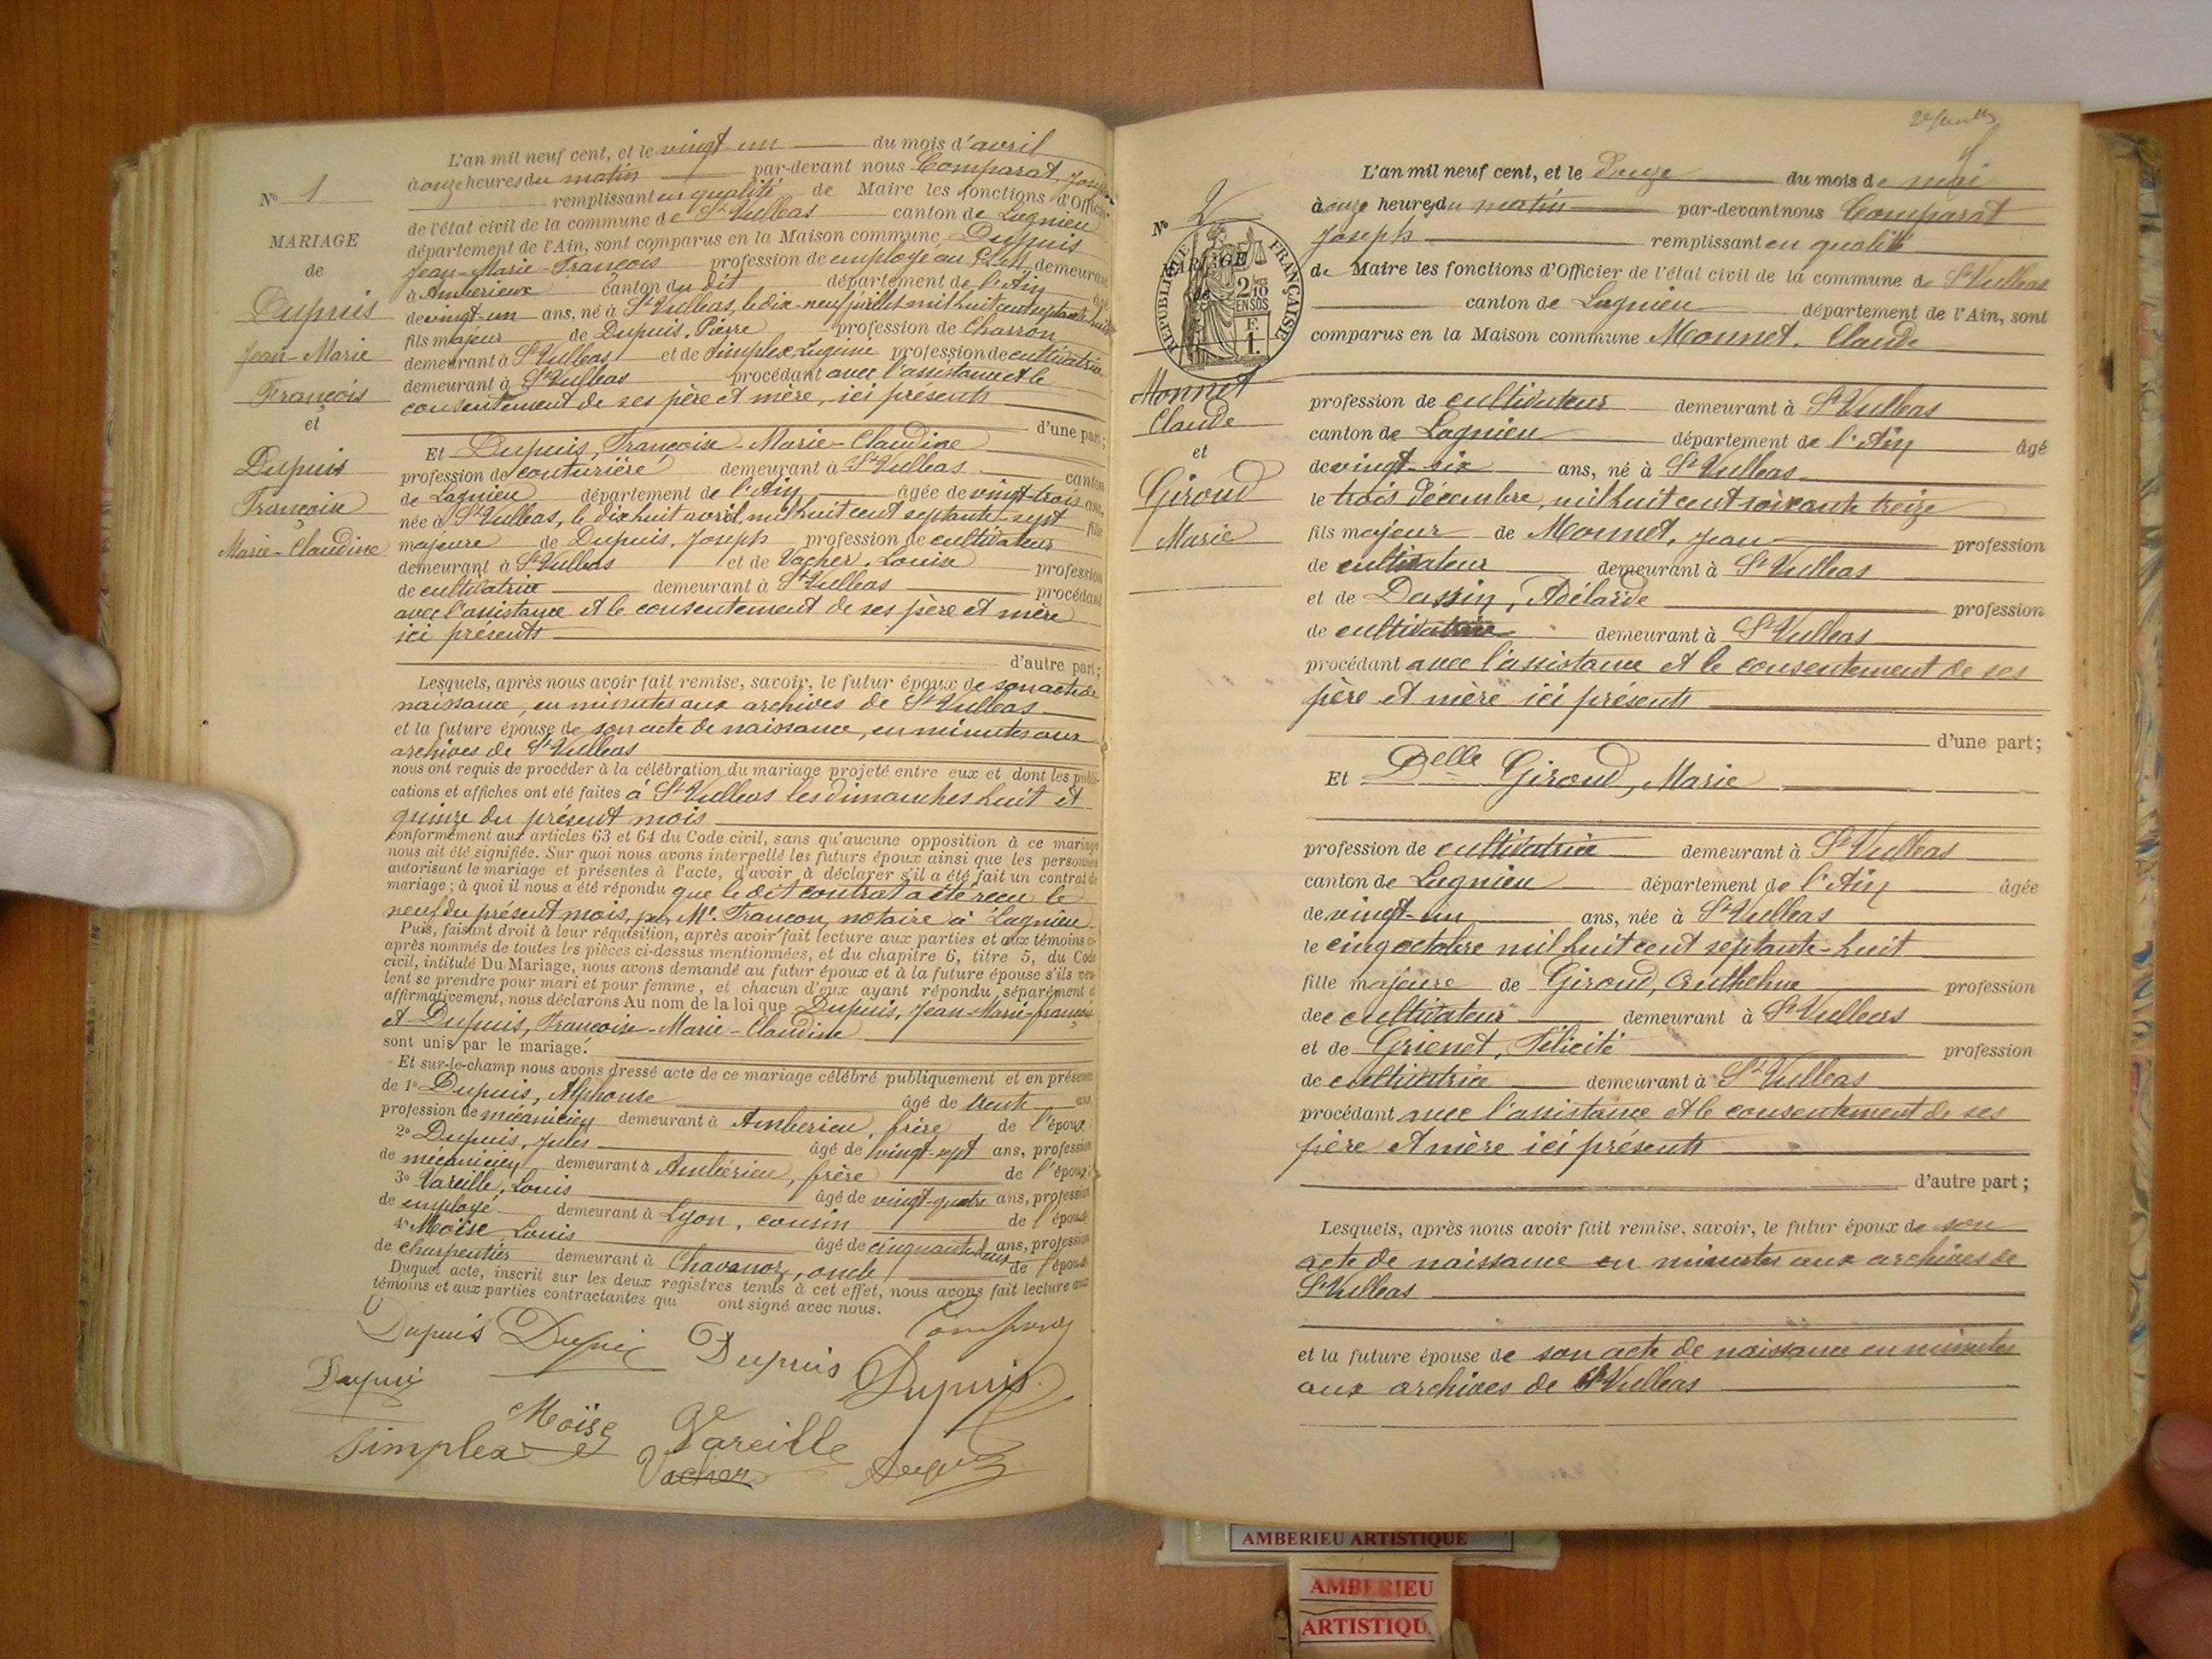 L'an mil neuf cent, et le vingt-un du mois d'avril
à onze heures du matin par-devant nous Comparat, Joseph
remplissant en qualité de Maire les fonctions d'Officier
de l'état civil de la commune de St Vulbas canton de Lagnieu
département de l'Ain, sont comparus en la Maison commune Dupuis
Jean-Marie-François profession de employé au P.L.M. demeurant
à Amberieux canton du dit département de l'Ain âgé
de vingt-un ans, né à St Vulbas, le dix-neuf juillet mil huit cent septante-huit
fils majeur de Dupuis, Pierre profession de Charron
demeurant à St Vulbas et de Simplex, Eugénie profession de cultivatrice
demeurant à St Vulbas procédant avec l'assistance et le
consentement de ses père et mère, ici présents
d'une part;
Et Dupuis, Françoise-Marie-Claudine
profession de couturière demeurant à St Vulbas canton
de Lagnieu département de l'Ain âgée de vingt-trois ans,
née à St Vulbas, le dix huit avril, mil huit cent septante-sept fille
majeure de Dupuis, Joseph profession de cultivateur
demeurant à St Vulbas et de Vacher, Louise profession
de cultivatrice demeurant à St Vulbas procédant
avec l'assistance et le consentement de ses père et mère
ici présents
d'autre part;
Lesquels, après nous avoir fait remise, savoir, le futur époux de son acte de
naissance, en minutes aux archives de St Vulbas
et la future épouse de son acte de naissance, en minutes aux
archives de St Vulbas
nous ont requis de procéder à la célébration du mariage projeté entre eux et dont les publi-
cations et affiches ont été faites à St Vulbas les dimanches huit et
quinze du présent mois
conformément aux articles 63 et 64 du Code civil, sans qu'aucune opposition à ce mariage
nous ait été signifiée. Sur quoi nous avons interpellé les futurs époux ainsi que les personnes
autorisant le mariage et présentes à l'acte, d'avoir à déclarer s'il a été fait un contrat de
mariage; à quoi il nous a été répondu que le dit contrat a été reçu le
neuf du présent mois, par Me Françon, notaire à Lagnieu.
Puis, faisant droit à leur réquisition, après avoir fait lecture aux parties et aux témoins ci-
après nommés de toutes les pièces ci-dessus mentionnées, et du chapitre 6, titre 5, du Code
civil, intitulé Du Mariage, nous avons demandé au futur époux et à la future épouse s'ils veu-
lent se prendre pour mari et pour femme, et chacun d'eux ayant répondu séparément et
affirmativement, nous déclarons Au nom de la loi que Dupuis, Jean-Marie-François
et Dupuis, Françoise-Marie-Claudine
sont unis par le mariage.
Et sur-le-champ nous avons dressé acte de ce mariage célébré publiquement et en présence
de 1° Dupuis, Alphonse âgé de trente ans
profession de mécanicien demeurant à Amberieu, frère de l'époux
2° Dupuis, Jules âgé de vingt-sept ans, profession
de mécanicien demeurant à Ambérieu, frère de l'époux
3° Vareille, Louis âgé de vingt-quatre ans, profession
de employé demeurant à Lyon, cousin de l'épouse
4° Moïse, Louis âgé de cinquante deux ans, profession
de charpentier demeurant à Chavanoz, oncle de l'épouse
Duquel acte, inscrit sur les deux registres tenus à cet effet, nous avons fait lecture aux
témoins et aux parties contractantes qui ont signé avec nous.
Dupuis Dupuis Dupuis Comparat
Dupuis Dupuis
Moïse Vareille
Simplex Vacher Dupuis
N° 1
MARIAGE
de
Dupuis
Jean-Marie
François
et
Dupuis
Françoise
Marie-Claudine
L'an mil neuf cent, et le Douze du mois de mai
à onze heures du matin par-devant nous Comparat
Joseph remplissant en qualité
de Maire les fonctions d'Officier de l'état civil de la commune de St Vulbas
canton de Lagnieu département de l'Ain, sont
comparus en la Maison commune Monnet, Claude
profession de cultivateur demeurant à St Vulbas
canton de Lagnieu département de l'Ain âgé
de vingt-six ans, né à St Vulbas
le trois décembre, mil huit cent soixante treize
fils majeur de Monnet, Jean profession
de cultivateur demeurant à St Vulbas
et de Dassin, Adélaïde profession
de cultivatrice demeurant à St Vulbas
procédant avec l'assistance et le consentement de ses
père et mère ici présents
d'une part;
Et Delle Giroud, Marie
profession de cultivatrice demeurant à St Vulbas
canton de Lagnieu département de l'Ain âgée
de vingt-un ans, née à St Vulbas
le cinq octobre mil huit cent septante-huit
fille majeure de Giroud, Anthelme profession
de cultivateur demeurant à St Vulbas
et de Grienet, Félicité profession
de cultivatrice demeurant à St Vulbas
procédant avec l'assistance et le consentement de ses
père et mère ici présents
d'autre part;
Lesquels, après nous avoir fait remise, savoir, le futur époux de son
acte de naissance en minutes aux archives de
St Vulbas
et la future épouse de son acte de naissance en minutes
aux archives de St Vulbas
N° 2
MARIAGE
de
RÉPUBLIQUE FRANÇAISE
2/10 EN SUS
F. 1.
Monnet
Claude
et
Giroud
Marie
AMBERIEU ARTISTIQUE
AMBERIEU
ARTISTIQU